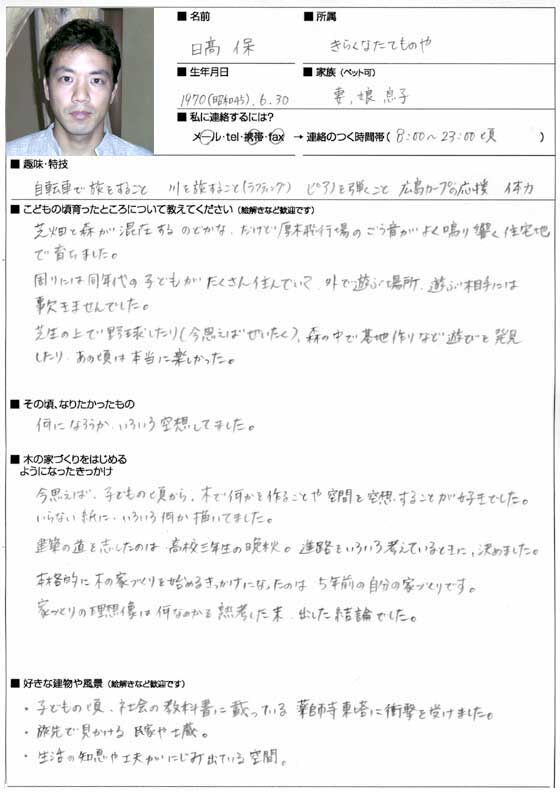 ■ 名前
日高 保
■ 所属
きらくなたてものや
■ 生年月日
1970(昭和45).6.30
■ 家族 (ペット可)
妻、娘、息子
■ 私に連絡するには?
メール・tel・携帯・fax → 連絡のつく時間帯( 8:00~23:00頃 )
■ 趣味・特技
自転車で旅をすること 川を旅すること(ラフティング) ピアノを弾くこと 広島カープの応援 体力
■ こどもの頃育ったところについて教えてください (絵解きなど歓迎です)
芝畑と森が混在するのどかな、だけど厚木飛行場のごう音がよく鳴り響く住宅地
で育ちました。
周りには同年代の子どもがたくさん住んでいて、外で遊ぶ場所、遊ぶ相手には
事欠きませんでした。
芝生の上で野球したり(今思えばぜいたく)、森の中で基地作りなど遊びを発見
したり、あの頃は本当に楽しかった。
■ その頃、なりたかったもの
何になろうか、いろいろ空想してました。
■ 木の家づくりをはじめる
ようになったきっかけ
今思えば、子どもの頃から、木で何かを作ることや空間を空想することが好きでした。
いらない紙に、いろいろ何か描いてました。
建築の道を志したのは、高校三年生の晩秋。進路をいろいろ考えているときに、決めました。
本格的に木の家づくりを始めるきっかけになったのは、5年前の自分の家づくりです。
家づくりの理想像は何なのかを熟考した末、出した結論でした。
■ 好きな建物や風景 (絵解きなど歓迎です)
・子どもの頃、社会の教科書に載っている薬師寺東塔に衝撃を受けました。
・旅先で見かける民家や土蔵。
・生活の知恵や工夫がにじみ出ている空間。